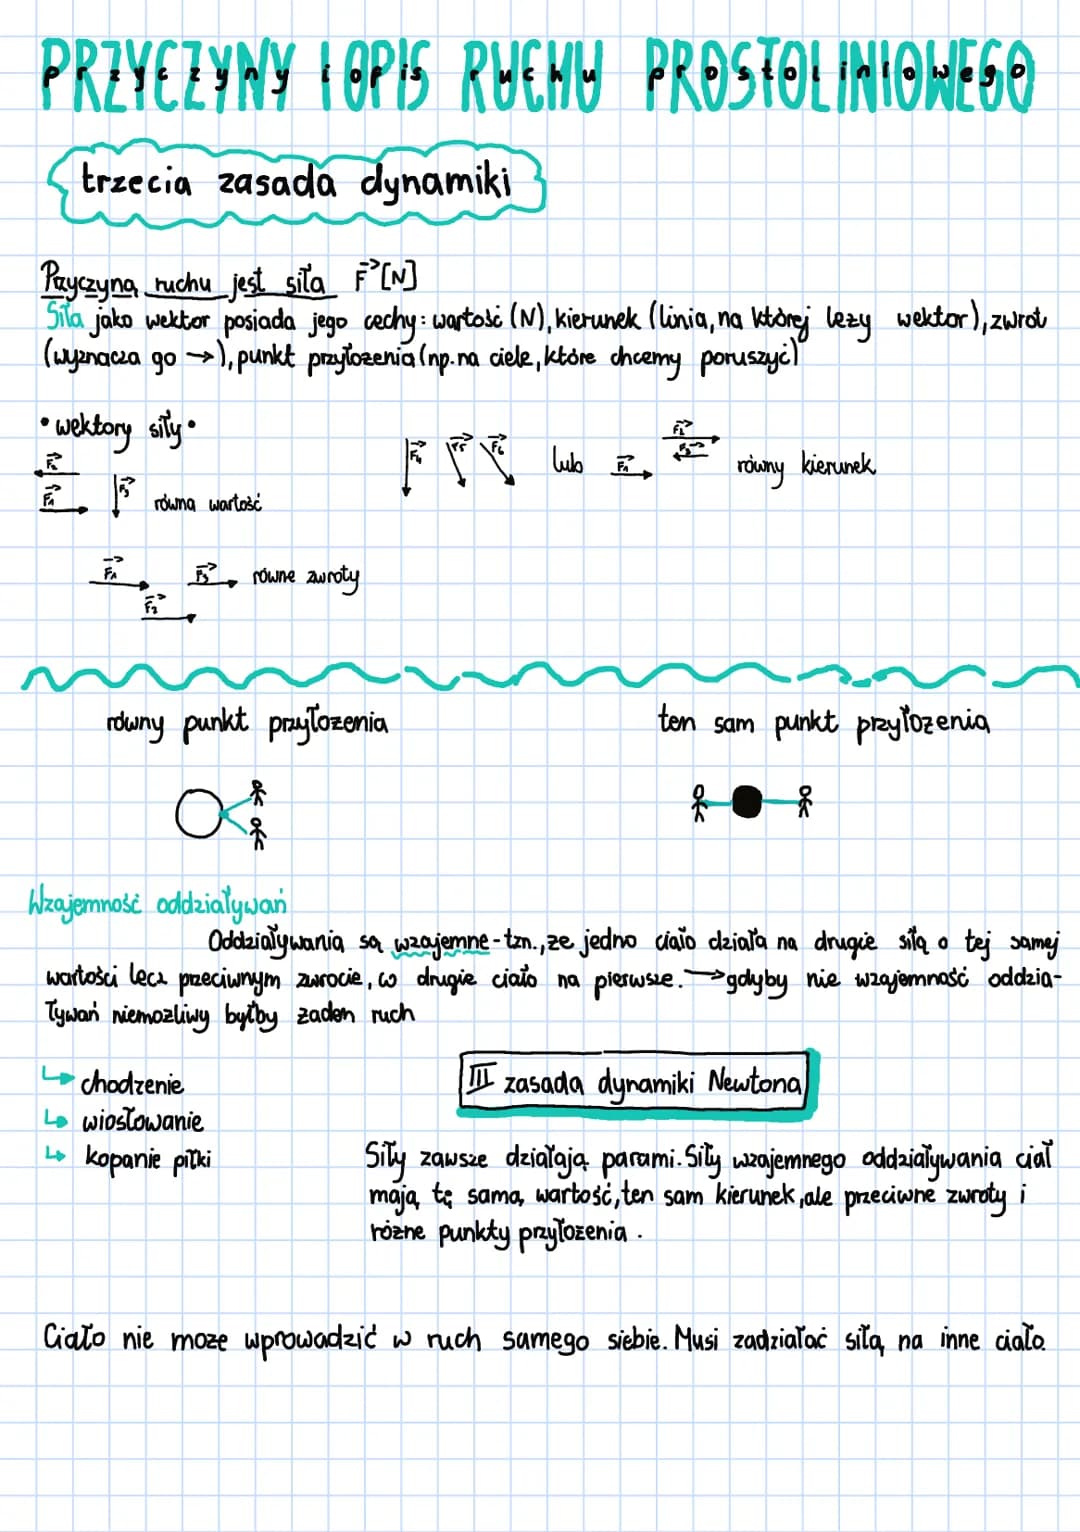 PRZYCZYNY I OPIS RUCHU PROSTOLINIOWEGO
przyczyny i opis ruchu prostoliniowego
trzecia zasada dynamiki
Przyczyną ruchu jest siła F→[N]
Siła jako wektor posiada jego cechy: wartość (N), kierunek (linia, na której leży wektor), zwrot
(wyznacza go →), punkt przyłożenia (np. na ciele, które chcemy poruszyć)
• wektory siły •
F₁ F₃ równa wartość
F₄ F₅ F₆ lub F₁ równy kierunek
F₁ F₃ równe zwroty
F₂
równy punkt przyłożenia
ten sam punkt przyłożenia
Wzajemność oddziaływań
Oddziaływania są wzajemne - tzn., że jedno ciało działa na drugie siłą o tej samej
wartości lecz przeciwnym zwrocie, co drugie ciało na pierwsze. → gdyby nie wzajemność oddzia-
ływań niemożliwy byłby żaden ruch
↳ chodzenie
↳ wiosłowanie
↳ kopanie piłki
III zasada dynamiki Newtona
Siły zawsze działają parami. Siły wzajemnego oddziaływania ciał
mają tę samą wartość, ten sam kierunek, ale przeciwne zwroty i
różne punkty przyłożenia.
Ciało nie może wprowadzić w ruch samego siebie. Musi zadziałać siłą na inne ciało.